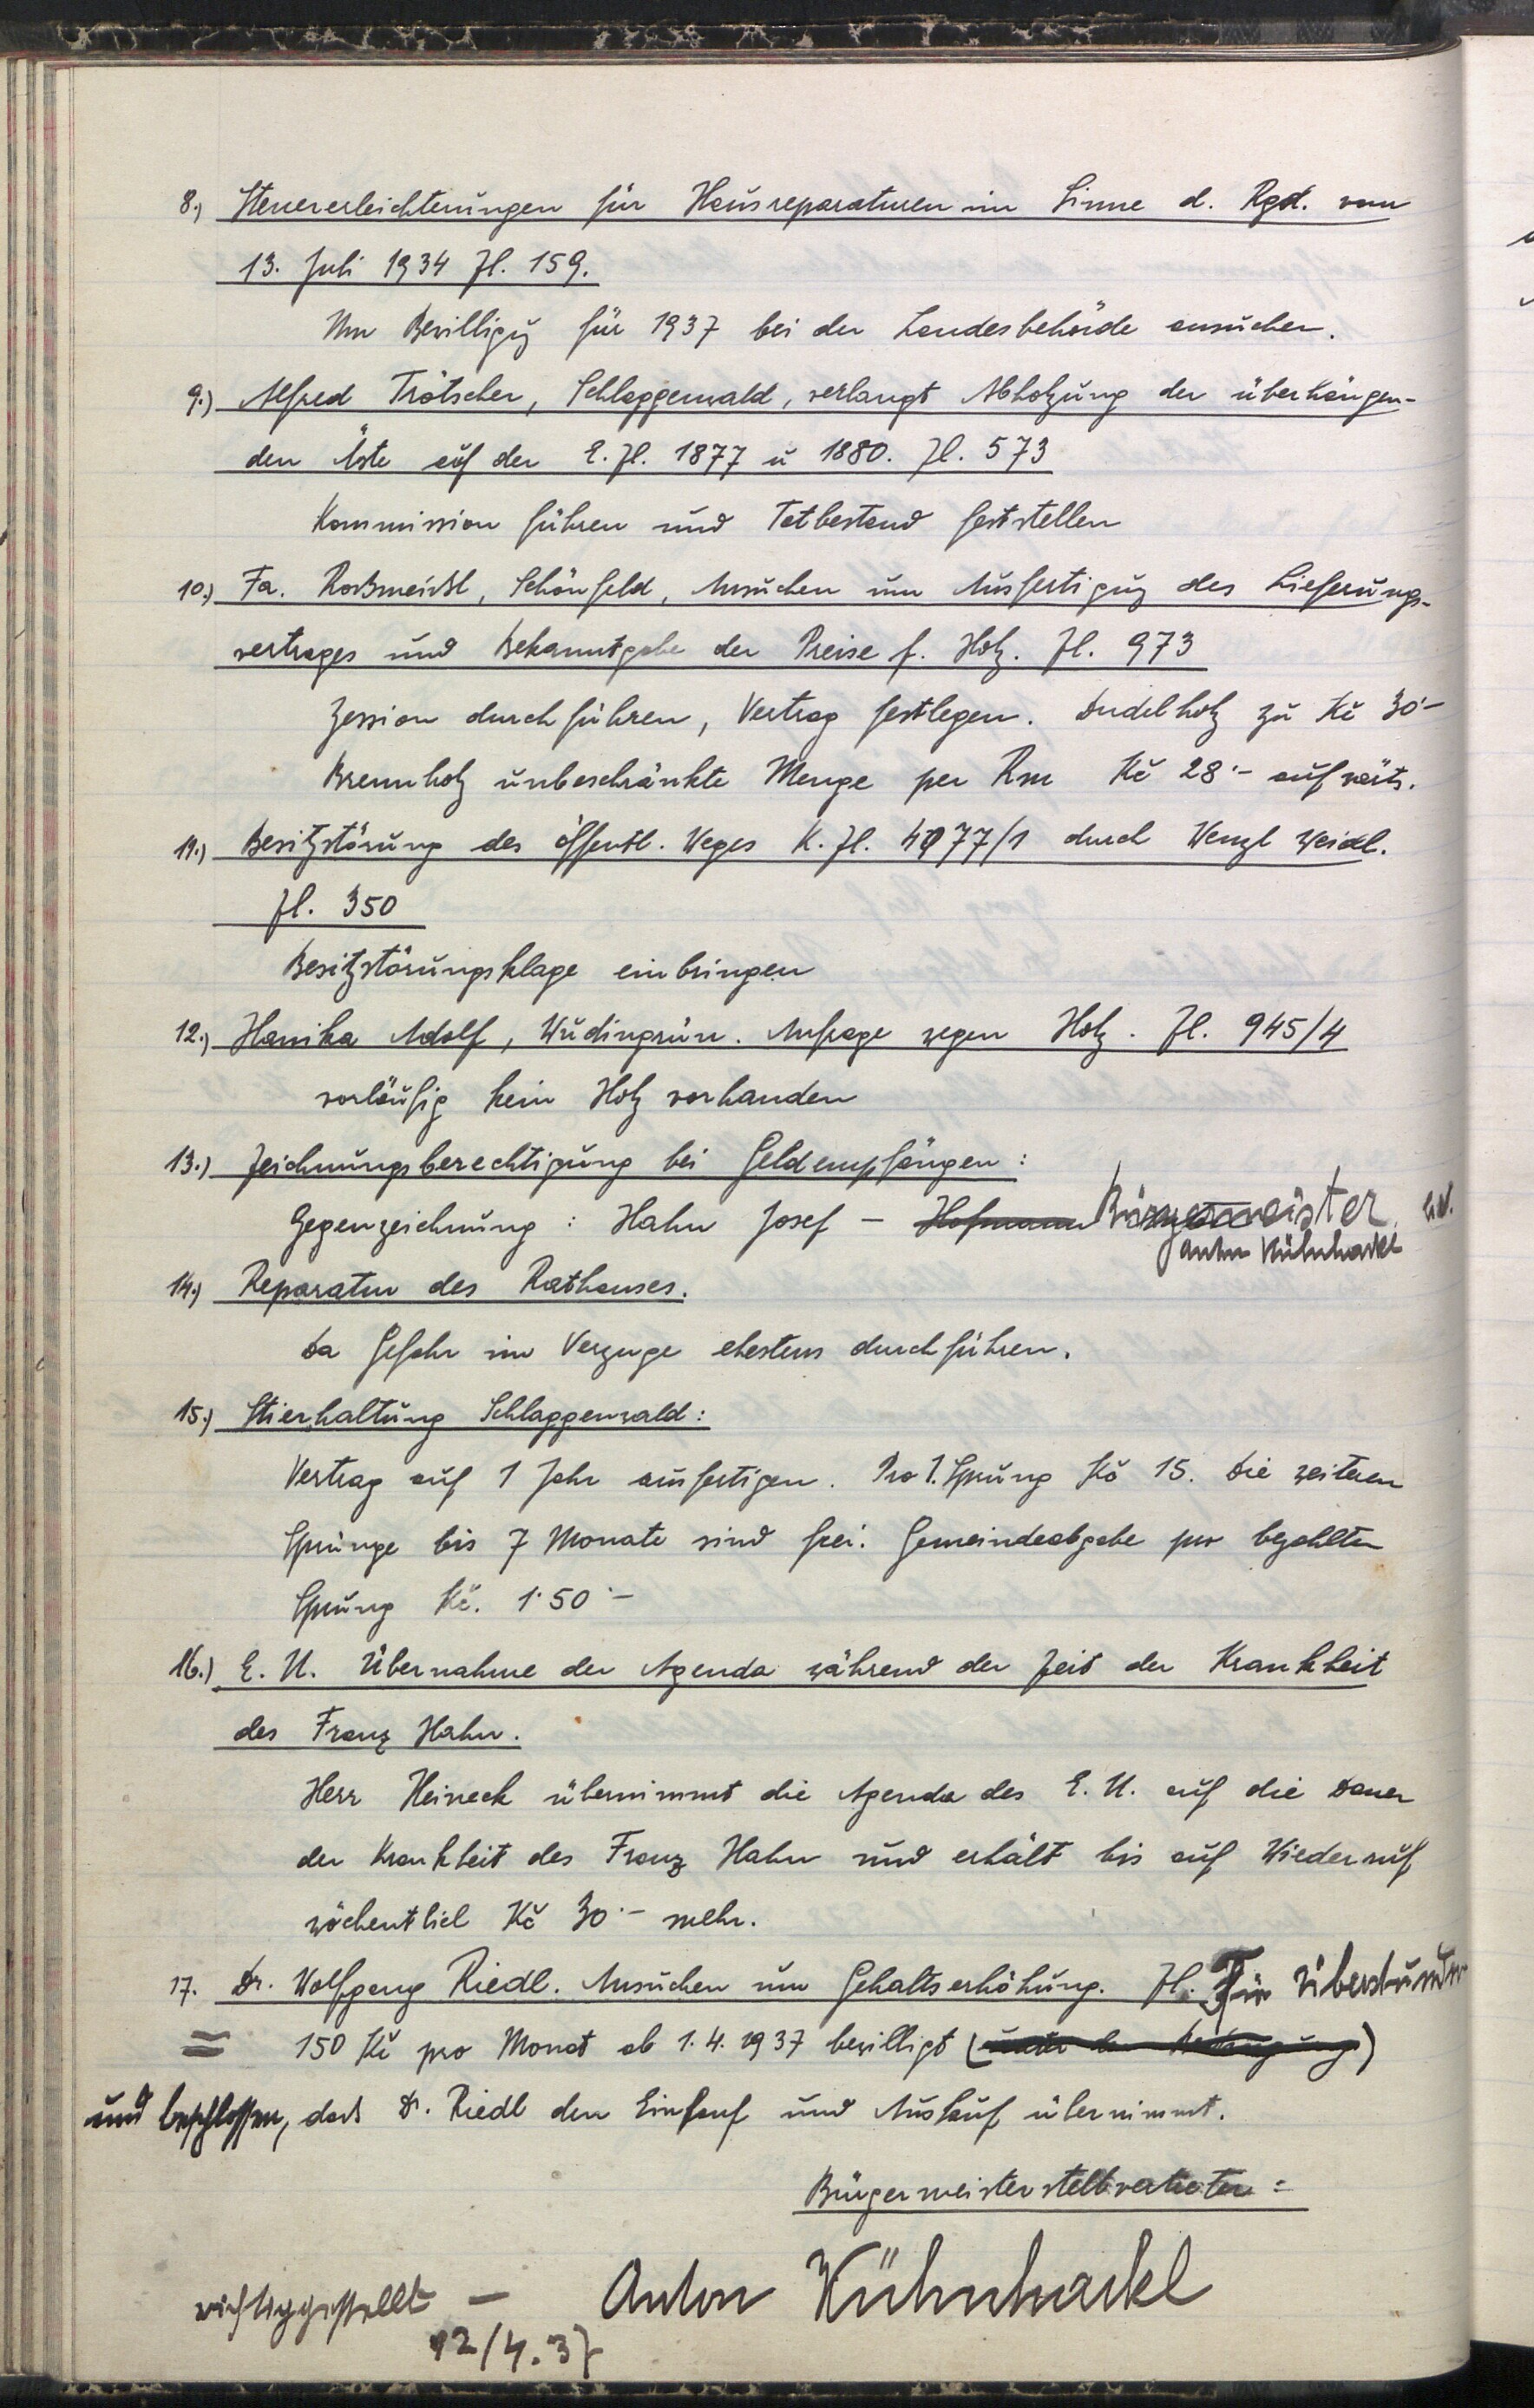 8.) Steuererleichterungen für Hausreparaturen im Sinne d. Rgd. vom
13. Juli 1934 Zl. 159.
Um Bewilligg für 1937 bei der Landesbehörde ansuchen.
9.) Alfred Trötscher, Schlaggenwald, verlangt Abholzung der überhängen-
den Äste auf der E. Zl. 1877 u 1880. Zl. 573
Kommission führen und Tatbestand feststellen
10.) Fa. Roßmeißl, Schönfeld, Ansuchen um Ausfertigung des Lieferungs-
vertrages und Bekanntgabe der Preise f. Holz. Zl. 973
Zession durchführen, Vertrag festlegen. Dudelholz zu Kč 30·-
Brennholz unbeschränkte Menge per Rm Kč 28·- aufwärts.
11.) Besitzstörung des öffentl. Weges K. Zl. 4077/1 durch Wenzl Weidl.
Zl. 350
Besitzstörungsklage einbringen
12.) Hanika Adolf, Wudingrün. Anfrage wegen Holz. Zl. 945/4
vorläufig kein Holz vorhanden
13.) Zeichnungsberechtigung bei Geldempfängen:
Gegenzeichnung: Hahn Josef - Hofmann Bürgermeister
Anton Kühnhackl
14.) Reparatur des Rathauses.
Da Gefahr im Verzuge ehestens durchführen.
15.) Stierhaltung Schlaggenwald:
Vertrag auf 1 Jahr ausfertigen. Pro 1. Sprung Kč 15. Die weiteren
Sprünge bis 7 Monate sind frei. Gemeindeabgabe pro bezahlten
Sprung Kč. 1·50·-
16.) E. U. Übernahme der Agenda während der Zeit der Krankheit
des Franz Hahn.
Herr Heineck übernimmt die Agenda des E. U. auf die Dauer
der Krankheit des Franz Hahn und erhält bis auf Wiederruf
wöchentlich Kč 30·- mehr.
17. Dr. Wolfgang Riedl. Ansuchen um Gehaltserhöhung. Zl. Für Überstunden
150 Kč pro Monat ab 1.4.1937 bewilligt (unter der Bedingung)
und beschlossen, das Dr. Riedl den Einlauf und Auslauf übernimmt.
Bürgermeisterstellvertreter:
Anton Kühnhackl
richtiggestellt -
12/4.37